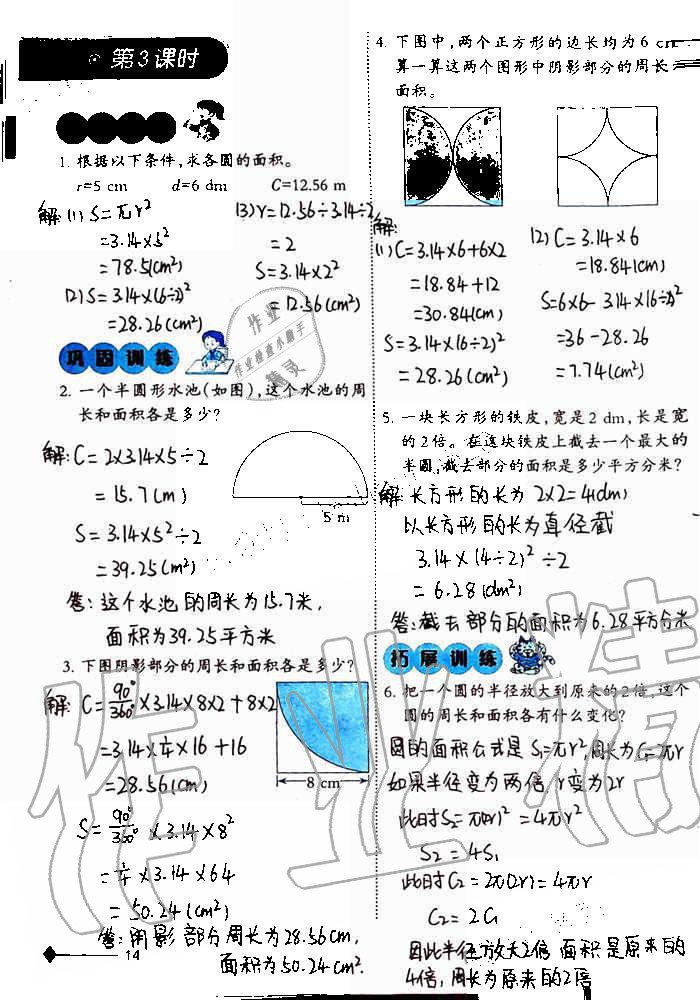 第3课时
1. 根据以下条件,求各圆的面积。
r=5 cm d=6 dm C=12.56 m
解:(1) S=πr²
=3.14×5²
=78.5(cm²)
(2) S=3.14×(6÷2)²
=28.26(cm²)
(3) r=12.56÷3.14÷2
=2
S=3.14×2²
=12.56(cm²)
巩固训练
2. 一个半圆形水池(如图),这个水池的周
长和面积各是多少?
解: C=2×3.14×5÷2
=15.7(m)
S=3.14×5²÷2
=39.25(m²)
5 m
答:这个水池的周长为15.7米,
面积为39.25平方米
3. 下图阴影部分的周长和面积各是多少?
解: C=90°/360°×3.14×8×2+8×2
=3.14×1/4×16+16
=28.56(cm)
S=90°/360°×3.14×8²
=1/4×3.14×64
=50.24(cm²)
8 cm
答:阴影部分周长为28.56cm,
面积为50.24cm².
14
4. 下图中,两个正方形的边长均为6 cm
算一算这两个图形中阴影部分的周长
面积。
解:
(1) C=3.14×6+6×2
=18.84+12
=30.84(cm)
S=3.14×(6÷2)²
=28.26(cm²)
(2) C=3.14×6
=18.84(cm)
S=6×6-3.14×(6÷2)²
=36-28.26
=7.74(cm²)
5. 一块长方形的铁皮,宽是2 dm,长是宽
的2倍。在这块铁皮上截去一个最大的
半圆,截去部分的面积是多少平方分米?
解:长方形的长为2×2=4(dm)
以长方形的长为直径截
3.14×(4÷2)²÷2
=6.28(dm²)
答:截去部分的面积为6.28平方分米
拓展训练
6. 把一个圆的半径放大到原来的2倍,这个
圆的周长和面积各有什么变化?
圆的面积公式是S₁=πr²,周长为C₁=2πr
如果半径变为两倍,r变为2r
此时S₂=π(2r)²=4πr²
S₂=4S₁
此时C₂=2π(2r)=4πr
C₂=2C₁
因此半径放大2倍面积是原来的
4倍,周长为原来的2倍
作业精灵
作业检查小助手